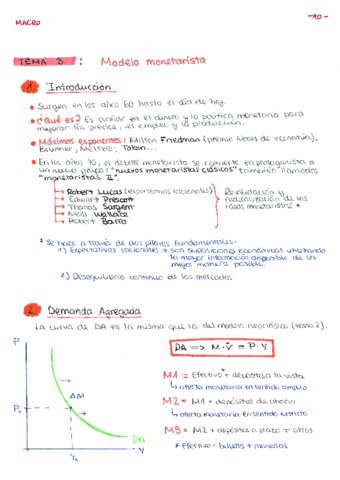 MACRO
-10-
TEMA 3: Modelo monetarista
1. Introducción
• Surgen en los años 60 hasta el día de hoy.
• ¿Qué es? Es confiar en el dinero y la política monetaria para
mejorar los precios, el empleo y la producción.
• Máximos exponentes: Milton Friedman (premio Nobel de economía),
Brunner, Meltzer, Tobin...
• En los años 70, el debate monetarista se convierte en protagonista a
un nuevo grupo: "nuevos monetaristas clásicos" también llamados
"monetaristas II".
→ Robert Lucas (expectativas racionales)
→ Edward Prescott
→ Thomas Sargent
→ Neil Wallace
→ Robert Barro
Revitalización y
radicalización de las
ideas monetaristas *
* Se hace a través de dos pilares fundamentales:
1) Expectativas racionales → son suposiciones económicas utilizando
la mayor información disponible de la
mejor manera posible.
2) Desequilibrio continuo de los mercados
2. Demanda Agregada
La curva de DA es la misma que la del modelo neoclásico (tema 2).
P
P₀
ΔM
DA
Y₀
Y
DA ⟹ M·V̄ = P·Y
M1 = Efectivo* + depósitos a la vista
↳ oferta monetaria en sentido amplio
M2 = M1 + depósitos de ahorro
↳ oferta monetaria en sentido estricto
M3 = M2 + depósitos a plazo + otros
* Efectivo: billetes + monedas